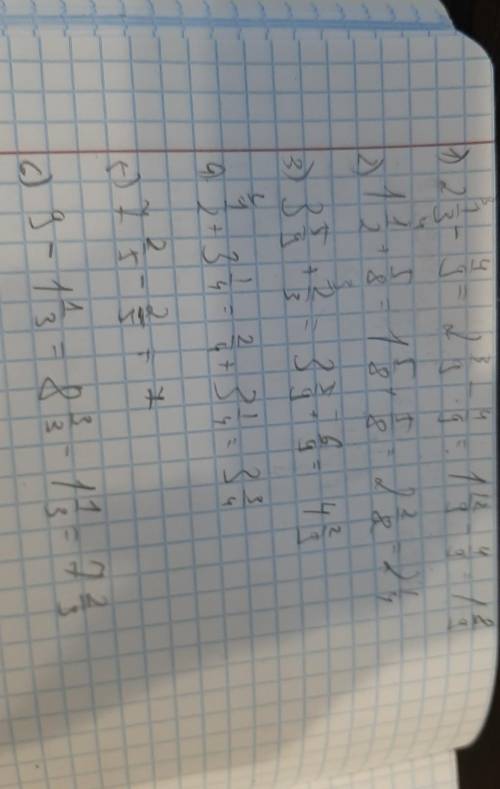 1) 2 1/3 - 4/9 = 2 3/9 - 4/9 = 1 12/9 - 4/9 = 1 8/9
2) 1 1/2 + 5/8 = 1 5/8 + 5/8 = 2 2/8 = 2 1/4
3) 3 5/9 + 2/3 = 3 5/9 + 6/9 = 4 2/9
4) 1/2 + 3 1/4 = 2/4 + 3 1/4 = 3 3/4
5) 7 2/5 - 2/5 = 7
6) 9 - 1 1/3 = 8 3/3 - 1 1/3 = 7 2/3